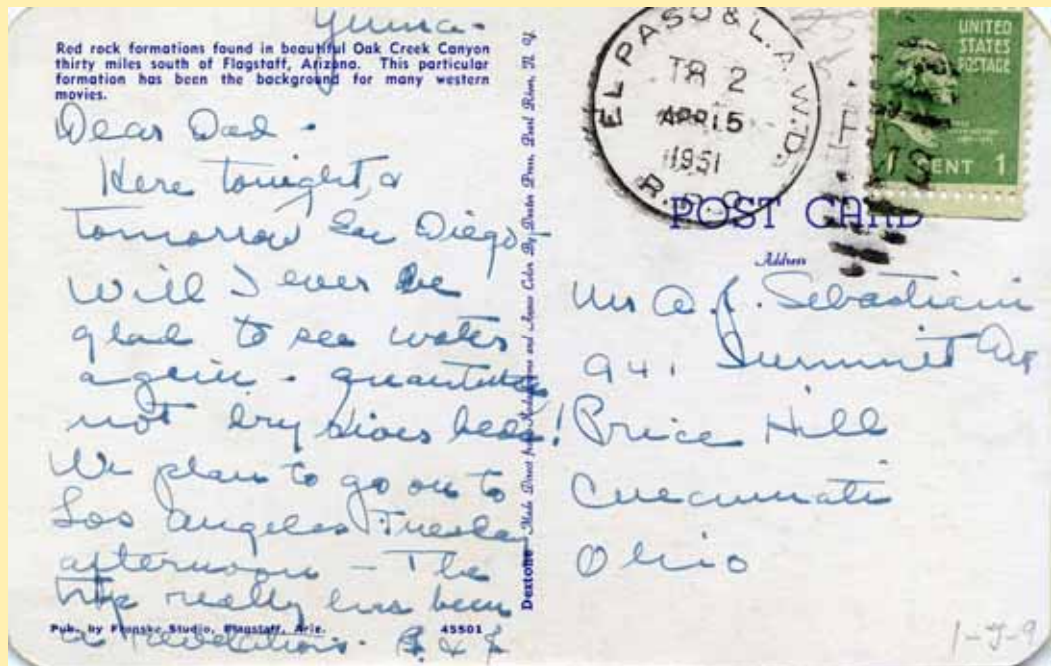 Yuma-
Red rock formations found in beautiful Oak Creek Canyon
thirty miles south of Flagstaff, Arizona. This particular
formation has been the background for many western
movies.
Dear Dad -
Here tonight, &
tomorrow San Diego -
Will I ever be
glad to see water
again - quantities
not dry rivers beds!
We plan to go on to
Los Angeles Tuesday
afternoon - The
trip really has been
a revelation. B. & J
Pub. by Fronske Studio, Flagstaff, Ariz.
45501
Dextone Made Direct from Kodachrome and Ansco Color By Dexter Press, Pearl River, N. Y.
EL PASO & L.A. W.D.
TR 2
APR 15
1951
R.P.O.
UNITED
STATES
POSTAGE
1 CENT 1
POST CARD
Address
Mr A. J. Sebastiani
941 Summit Ave
Price Hill
Cincinnati
Ohio
1-J-9